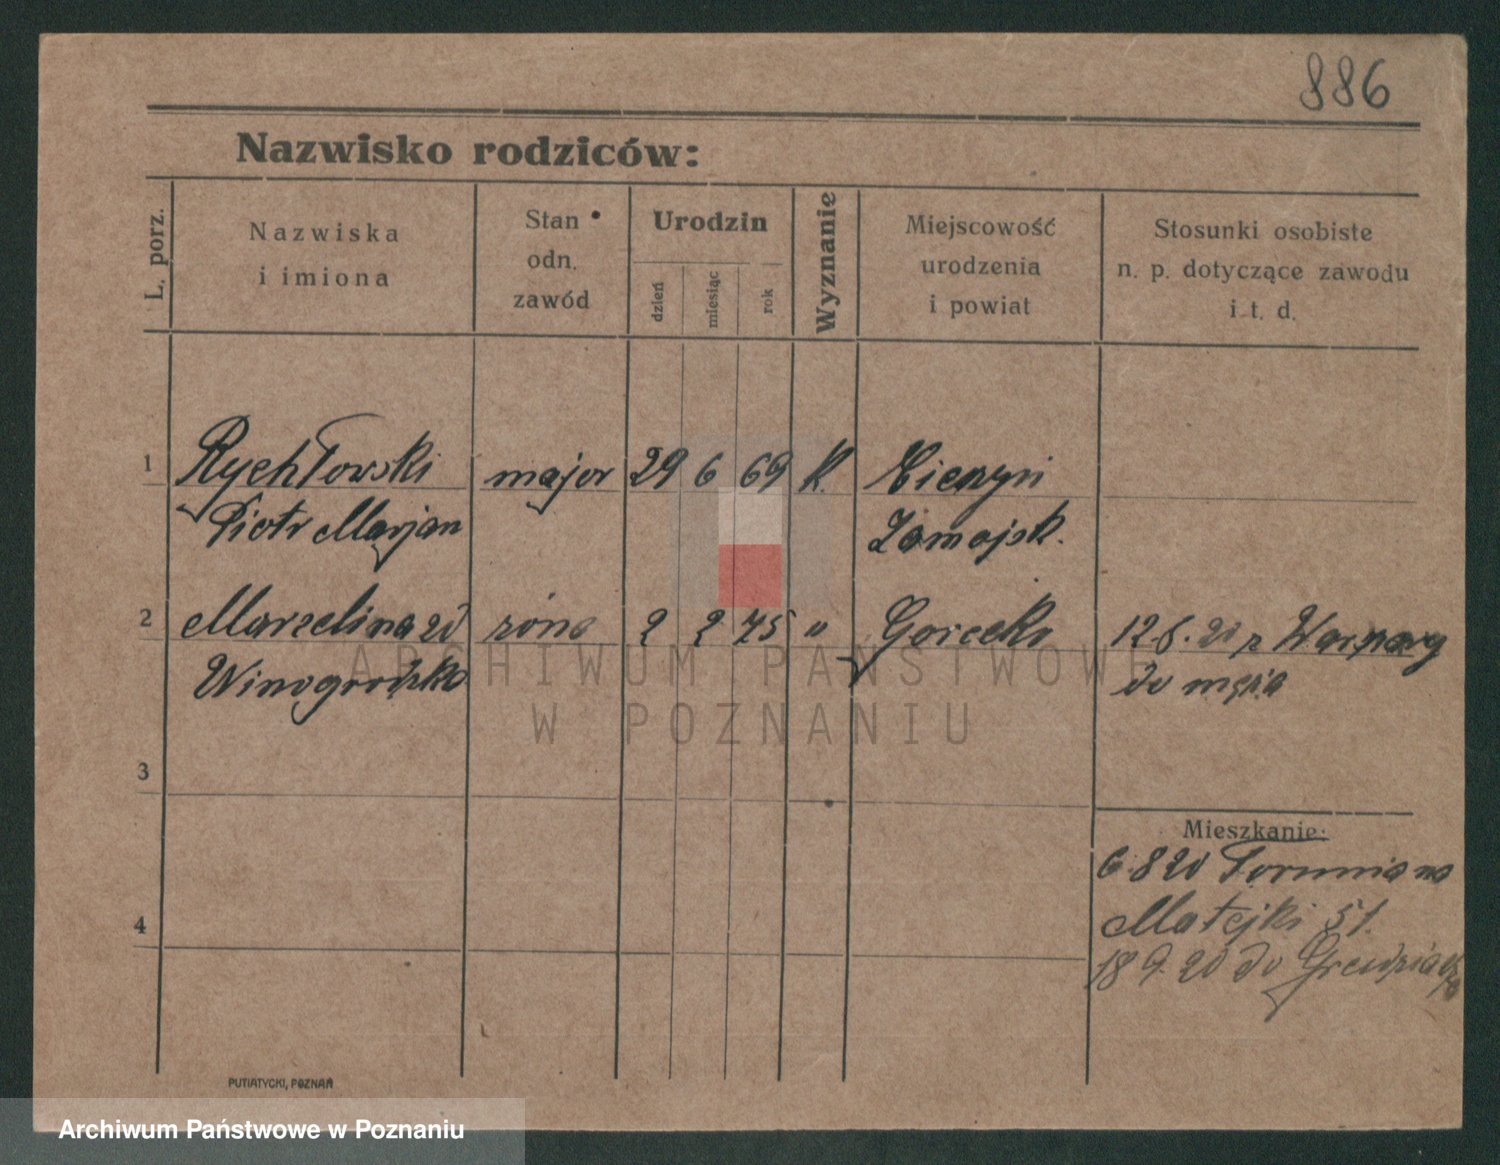 886
Nazwisko rodziców:
L. porz.
Nazwiska
i imiona
Stan
odn.
zawód
Urodzin
dzień
miesiąc
rok
Wyznanie
Miejscowość
urodzenia
i powiat
Stosunki osobiste
n. p. dotyczące zawodu
i t. d.
1 Rychłowski major 29 6 69 K.
Piotr Marjan Zamojsk.
2 Marcelina zd żona 2 2 75 " Gorecko 12.8.20 z Warszawy
Winogrodzka do męża
3
Mieszkanie:
6.8.20 Torunia na
Matejki 51.
4
18 9.20 do Grudziądza
PUTIATYCKI, POZNAŃ
ARCHIWUM PAŃSTWOWE
W POZNANIU
Archiwum Państwowe w Poznaniu